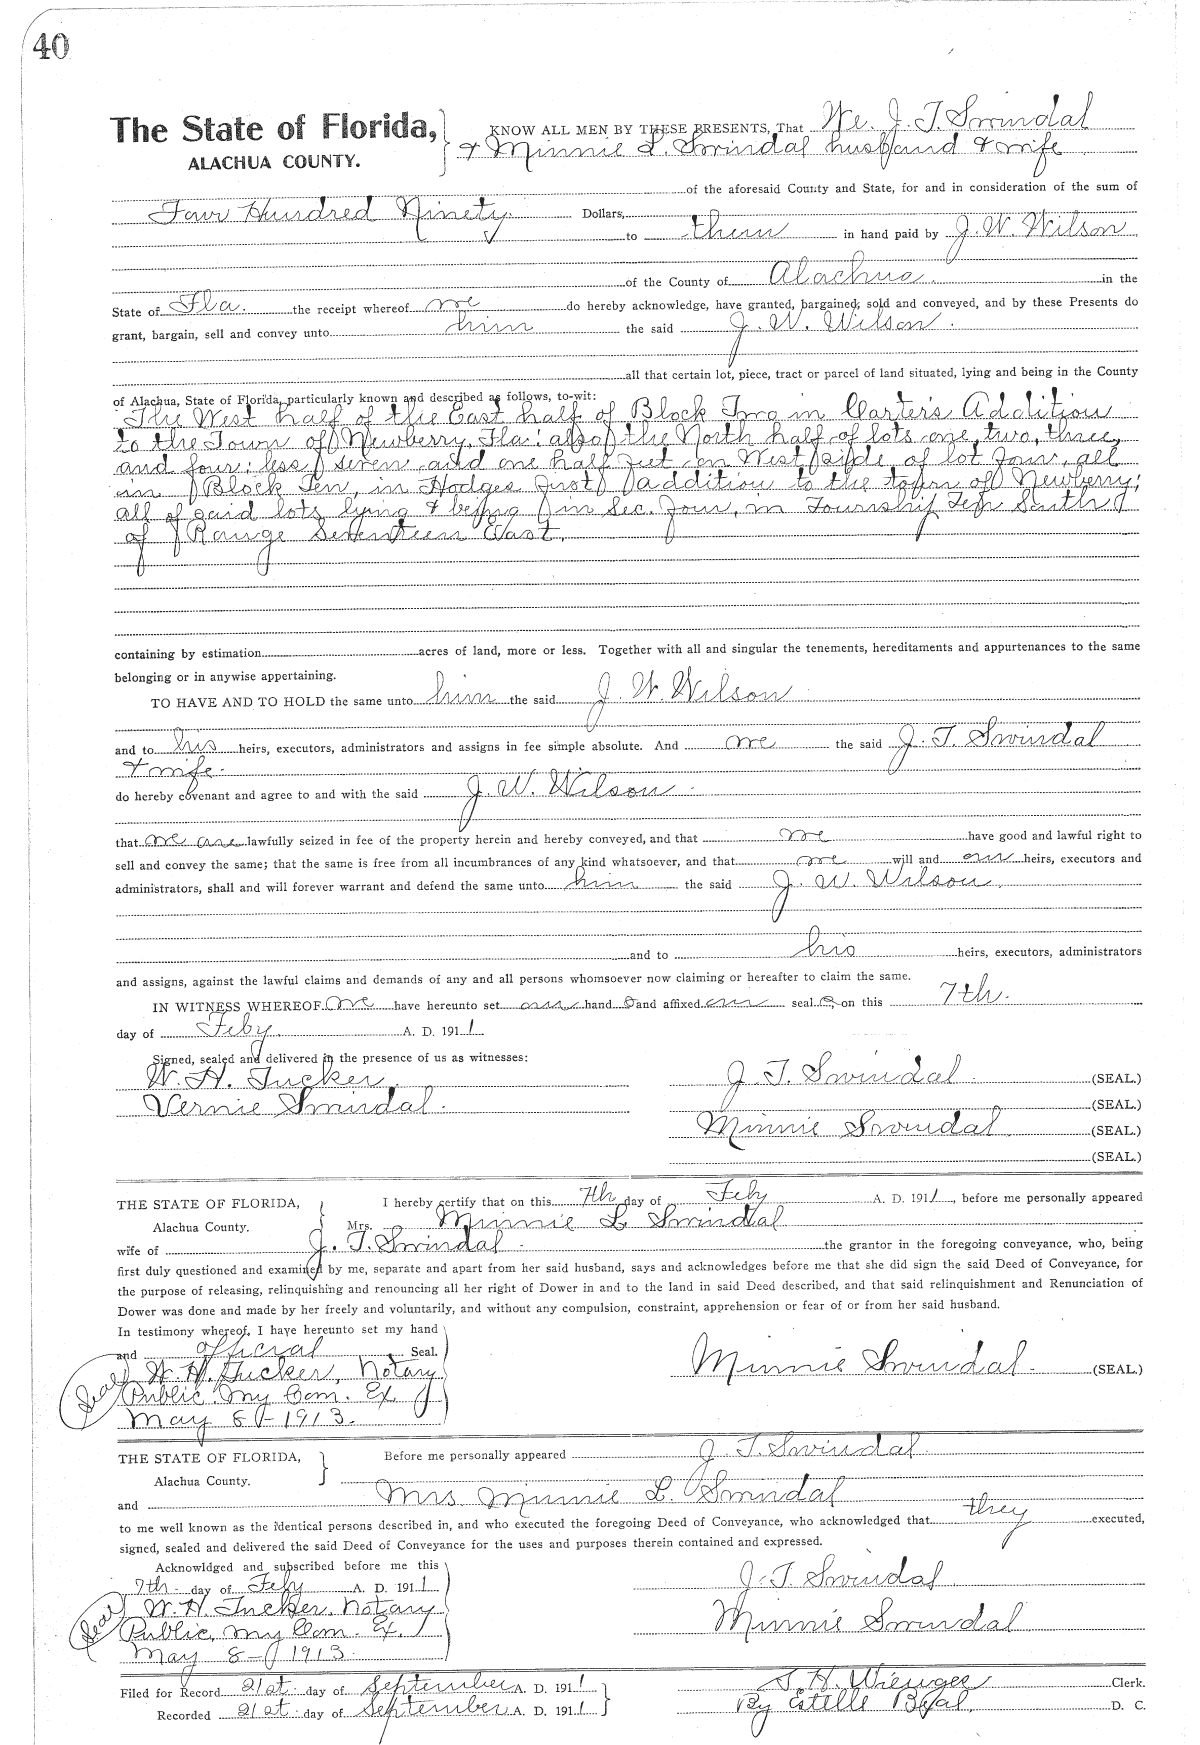 40
The State of Florida, KNOW ALL MEN BY THESE PRESENTS, That We. J. T. Swindal
ALACHUA COUNTY. & Minnie L. Swindal husband & wife
of the aforesaid County and State, for and in consideration of the sum of
Four Hundred Ninety Dollars,
to them in hand paid by J. W. Wilson
of the County of Alachua. in the
State of Fla. the receipt whereof we do hereby acknowledge, have granted, bargained, sold and conveyed, and by these Presents do
grant, bargain, sell and convey unto him the said J. W. Wilson.
all that certain lot, piece, tract or parcel of land situated, lying and being in the County
of Alachua, State of Florida, particularly known and described as follows, to-wit:
The West half of the East half of Block Two in Carter's Addition
to the Town of Newberry, Fla: also the North half of lots one, two, three,
and four: less seven and one half feet on West side of lot four, all
in Block Ten, in Hodges first addition to the town of Newberry;
all of said lots lying & being in Sec. four, in Township Ten South
of Range Seventeen East.
containing by estimation acres of land, more or less. Together with all and singular the tenements, hereditaments and appurtenances to the same
belonging or in anywise appertaining.
TO HAVE AND TO HOLD the same unto him the said J. W. Wilson
and to his heirs, executors, administrators and assigns in fee simple absolute. And we the said J. T. Swindal
& wife.
do hereby covenant and agree to and with the said J. W. Wilson.
that we are lawfully seized in fee of the property herein and hereby conveyed, and that we have good and lawful right to
sell and convey the same; that the same is free from all incumbrances of any kind whatsoever, and that we will and our heirs, executors and
administrators, shall and will forever warrant and defend the same unto him the said J. W. Wilson.
and to his heirs, executors, administrators
and assigns, against the lawful claims and demands of any and all persons whomsoever now claiming or hereafter to claim the same.
IN WITNESS WHEREOF We have hereunto set our hand s and affixed our seal s, on this 7th.
day of Feby. A. D. 1911
Signed, sealed and delivered in the presence of us as witnesses:
W. H. Tucker. J. T. Swindal. (SEAL.)
Vernie Swindal. (SEAL.)
Minnie Swindal (SEAL.)
(SEAL.)
THE STATE OF FLORIDA, I hereby certify that on this 7th day of Feby A. D. 1911, before me personally appeared
Alachua County. Mrs. Minnie L Swindal
wife of J. T. Swindal. the grantor in the foregoing conveyance, who, being
first duly questioned and examined by me, separate and apart from her said husband, says and acknowledges before me that she did sign the said Deed of Conveyance, for
the purpose of releasing, relinquishing and renouncing all her right of Dower in and to the land in said Deed described, and that said relinquishment and Renunciation of
Dower was done and made by her freely and voluntarily, and without any compulsion, constraint, apprehension or fear of or from her said husband.
In testimony whereof, I have hereunto set my hand
and official Seal.
Seal W. H. Tucker, Notary Minnie Swindal. (SEAL.)
Public. My Com. Ex
May 8 - 1913.
THE STATE OF FLORIDA, Before me personally appeared J. T. Swindal.
Alachua County.
and Mrs Minnie L. Swindal
to me well known as the identical persons described in, and who executed the foregoing Deed of Conveyance, who acknowledged that they executed,
signed, sealed and delivered the said Deed of Conveyance for the uses and purposes therein contained and expressed.
Acknowldged and subscribed before me this
7th. day of Feby A. D. 1911 J. T. Swindal
Seal W. H. Tucker. Notary
Public, My Com. Ex. Minnie Swindal
May 8 - 1913.
Filed for Record 21st. day of September A. D. 1911 S. H. Wienges Clerk.
Recorded 21st. day of September A. D. 1911 By Estelle D. C.